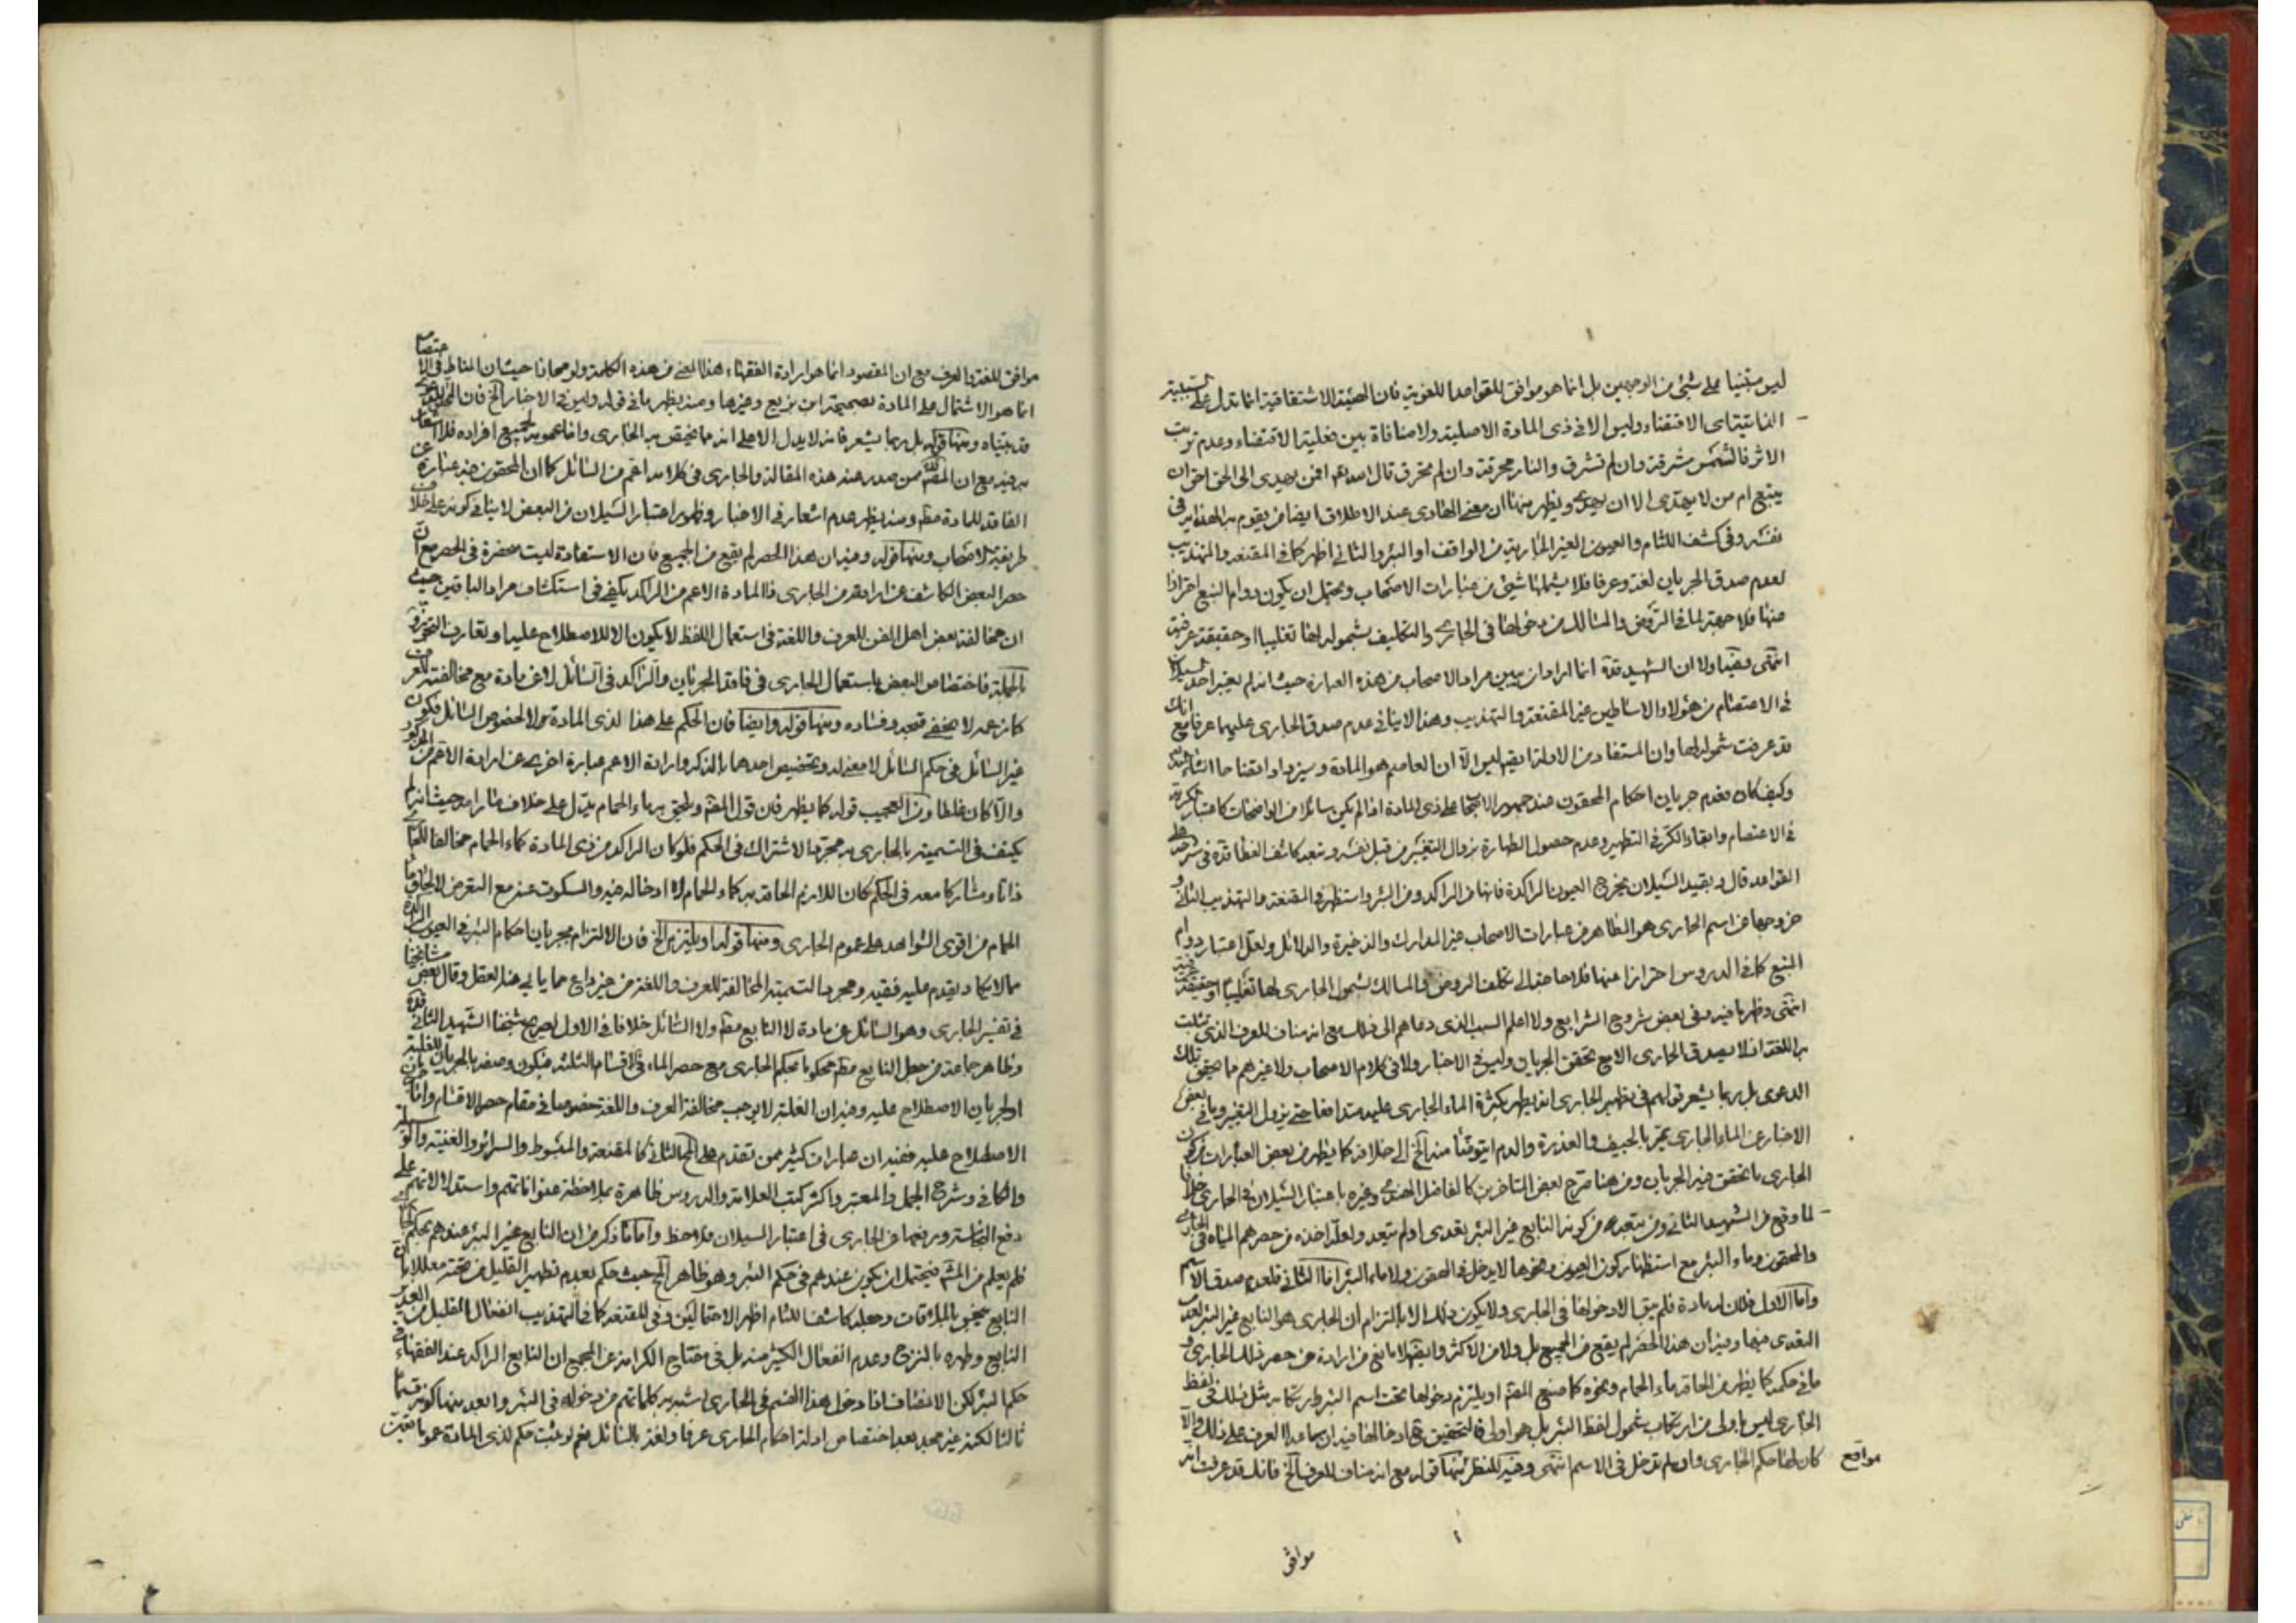 ليس مبتنيا على شيئ من الوجهين بل انما هو موافق للقواعد اللغوية فان الهيئة الاشتقاقية انما تدل على
الاقتضاء وليس الا فى ذى المادة الاصلية ولا منافاة بين فعلية الاقتضاء وعدم ترتب
الاثر فالشمس مشرقة وان لم تشرق والنار محرقة وان لم تحرق قال افمن يهدى الى الحق احق ان
يتبع ام من لا يهدى الا ان يهدى ويظهر منها ان معنى الهادى عند الاطلاق ايضا من يقوم به الهداية فى
نفسه وفى كشف اللثام والعيون الغير الجارية من الواقف او البئر والثانى اظهر كما فى المقنعة والتهذيب
لعدم صدق الجريان لغة وعرفا فلا يشملها شيئ من عبارات الاصحاب ويحتمل ان يكون دوام النبع احترازا
عنها فلا جهة لما فى الروض والمسالك من دخولها فى الجارى والتكليف بشموله لها تغليبا او حقيقة عرفية
انتهى ففيه اولا ان الشهيد قده انما اراد ان يبين مراد الاصحاب من هذه العبارة حيث انه لم يعتبر احد السيلان
فى الاعتصام من هؤلاء الاساطين غير المقنعة والتهذيب وهذا لا ينافى عدم صدق الجارى عليها عرفا مع انك
قد عرفت شموله لها وان المستفاد من الادلة ليس الا ان العاصم هو المادة وسيزداد اتضاحا
وكيف كان فعدم جريان احكام المحقون عند جمهور الاصحاب على ذى المادة اذا لم يكن سائلا من الواضحات كاعتبار الكرية
فى الاعتصام والقاء الكر فى التطهير وعدم حصول الطهارة بزوال التغير من قبل نفسه وتبعه كاشف الغطا قده فى شرحه على
القواعد قال وبقيد السيلان يخرج العيون الراكدة فانها من الراكد ومن البئر واستظهره المقنعة والتهذيب الثانى و
خروجها عن اسم الجارى هو الظاهر من عبارات الاصحاب غير المدارك والذخيرة والدلائل ولعل اعتبار دوام
النبع كما فى الدروس احترازا عنها فلا حاجة الى تكلف الروض والمسالك بشمول الجارى لها تغليبا او حقيقة عرفية
انتهى وظهر ما فيه وفى بعض شروح الشرايع ولا اعلم السبب الذى دعاهم الى ذلك مع انه مناف للعرف الذى يثبت
به اللغة اذ لا يصدق الجارى الا مع تحقق الجريان وليس فى الاخبار ولا فى كلام الاصحاب ولا غيرهم ما يقتضى تلك
الدعوى بل ربما يشعر قولهم فى تطهير الجارى انه يطهر بكثرة الماء الجارى عليه متدافعا حتى يزول التغير وما فى بعض
الاخبار عن الماء الجارى يمر بالجيف والعذرة والدم ايتوضأ منه الخ الى خلافه كما يظهر من بعض العبارات كون
الجارى ما تحقق فيه الجريان ومن هنا صرح بعض المتاخرين كالفاضل الهندى وغيره باعتبار السيلان فى الجارى خلافا
لما وقع من الشهيد الثانى ومن تبعه من كونه النابع غير البئر تعدى او لم يتعد ولعله اخذه من حصرهم المياه فى الجارى
والمحقون وماء البئر مع استظهار كون العيون ونحوها لا يدخل فى المحقون ولا ماء البئر اما الثانى فلعدم صدق الاسم
واما الاول فلان له مادة فلم يبق الا دخولها فى الجارى ولا يكون ذلك الا بالتزام ان الجارى هو النابع غير البئر لعدم
التعدى فيها وفيه ان هذا الحصر لم يقع من الجميع بل ولا من الاكثر وايضا لا مانع من ارادة من حصر ذلك الجارى و
ما فى حكمه كما يظهر من الحاقه ماء الحمام ونحوه كما صنع المصنف او يلتزم دخولها تحت اسم البئر وارتكاب مثل ذلك فى لفظ
الجارى ليس باولى من ارتكاب شمول لفظ البئر بل هو اولى فالتحقيق ادخالها فيه ان ساعد العرف على ذلك والا
كان لها حكم الجارى وان لم تدخل فى الاسم انتهى وفيه للنظر مواقع منها قوله مع انه مناف للعرف الخ فانك قد عرفت انه
موافق
موافق للغة والعرف مع ان المقصود انما هو ارادة الفقهاء هذا المعنى من هذه الكلمة ولو مجازا حيث ان المناط فى الاعتصام
انما هو الاشتمال على المادة بصحيحة ابن بزيع وغيرها ومنه يظهر ما فى قوله وليس فى الاخبار الخ فان
قد بيناه ومنها قوله بل ربما يشعر فانه لا يدل الا على انه مما يختص به الجارى واما عمومه لجميع افراده فلا اشعار
به فيه مع ان ممن صدر عنه هذه المقالة والجارى فى كلامه اعم من السائل كما ان المحقون عنده عبارة عن
الفاقد للمادة مطلقا ومنه يظهر عدم اشعار فى الاخبار وظهور اعتبار السيلان من البعض لا ينافى كونه على خلاف
طريقة الاصحاب ومنها قوله وفيه ان هذا الحصر لم يقع من الجميع فان الاستفادة ليست منحصرة فى الحصر مع ان
حصر البعض الكاشف عن ارادته من الجارى ذا المادة الاعم من الراكد يكفى فى استكشاف مراد الباقين حيث
ان مخالفة بعض اهل الفن للعرف واللغة فى استعمال اللفظ لا يكون الا للاصطلاح عليه او تعارف التجوز و
بالجملة فاختصاص البعض باستعمال الجارى فى فاقد الجريان والراكد فى السائل لا عن مادة مع مخالفته للعرف
كازعمه لا يخفى بعده وفساده ومنها قوله وايضا فان الحكم على هذا لذى المادة لا لخصوص السائل فكون
غير السائل فى حكم السائل لا معنى له وتخصيص احدهما بالذكر وارادة الاعم عبارة اخرى عن ارادة الاعم من
والا كان غلطا ومن العجيب قوله كما يظهر فان قول المصنف ويلحق به ماء الحمام يدل على خلاف ما رامه حيث انه لم
يكتف فى التسمية بالجارى بمجرد الاشتراك فى الحكم فلو كان الراكد من ذى المادة كماء الحمام مخالفا للجارى
ذاتا ومشاركا معه فى الحكم كان اللازم الحاقه به كماء الحمام لا ادخاله فيه والسكوت عنه مع التعرض لالحاق ماء
الحمام من اقوى الشواهد على عموم الجارى ومنها قوله او يلتزم الخ فان الالتزام بجريان احكام البئر فى العيون الراكدة
مما لا يكاد يقدم عليه فقيه ومجرد التسمية المخالفة للعرف واللغة من غير داع مما يابى عنه العقل وقال بعض مشايخنا
فى تفسير الجارى وهو السائل عن مادة لا النابع مطلقا ولا السائل خلافا فى الاول لصريح شيخنا الشهيد الثانى قده
وظاهر جماعة من جعل النابع مطلقا محكوما بحكم الجارى مع حصر الماء فى الاقسام الثلثة فيكون وصفه بالجريان للغلبة
او لجريان الاصطلاح عليه وفيه ان الغلبة لا يوجب مخالفة العرف واللغة خصوصا فى مقام حصر الاقسام واما
الاصطلاح عليه ففيه ان عبارات كثير ممن تقدم على الشهيد الثانى كالمقنعة والمبسوط والسرائر والغنية والوسيلة
والكافى وشرح الجمل والمعتبر واكثر كتب العلامة والدروس ظاهرة بملاحظة عنواناتهم واستدلالاتهم على
دفع النجاسة ورفعها عن الجارى فى اعتبار السيلان فلاحظ واما ما ذكر من ان النابع غير البئر عندهم بحكم الجارى
فلم يعلم من المشهور فيحتمل ان يكون عندهم فى حكم البئر وهو ظاهر حيث حكم بعدم تطهير القليل من تحته معللا بان
النابع ينجس بالملاقات وجعله كاشف اللثام اظهر الاحتمالين وفى المقنعة كما فى التهذيب انفعال القليل من الغدير
النابع وطهره بالنزح وعدم انفعال الكثير منه بل فى مفتاح الكرامة عن المجمع ان النابع الراكد عند الفقهاء فى
حكم البئر لكن الانصاف ان دخول هذا القسم فى الجارى اشبه بكلماتهم من دخوله فى البئر وابعد منهما كونه قسما
ثالثا لكنه غير مجد بعد اختصاص ادلة احكام الجارى عرفا ولغة بالسائل نعم لو ثبت حكم لذى المادة عموما ثبت